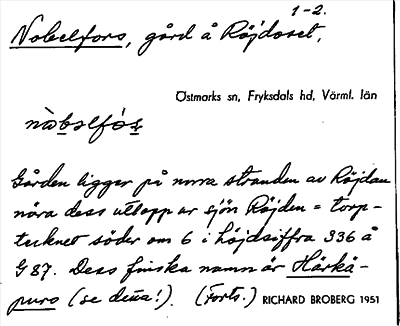 1-2.
Nobelfors, gård å Röjdoset,
Östmarks sn, Fryksdals hd, Värml. län
nòbəlfór̀s
Gården ligger på norra stranden av Röjdan
nära dess utlopp ur sjön Röjden = torp-
tecknet söder om 6 i höjdsiffra 336 å
G 87. Dess finska namn är Härkä-
puro (se detta!). (Forts.) RICHARD BROBERG 1951